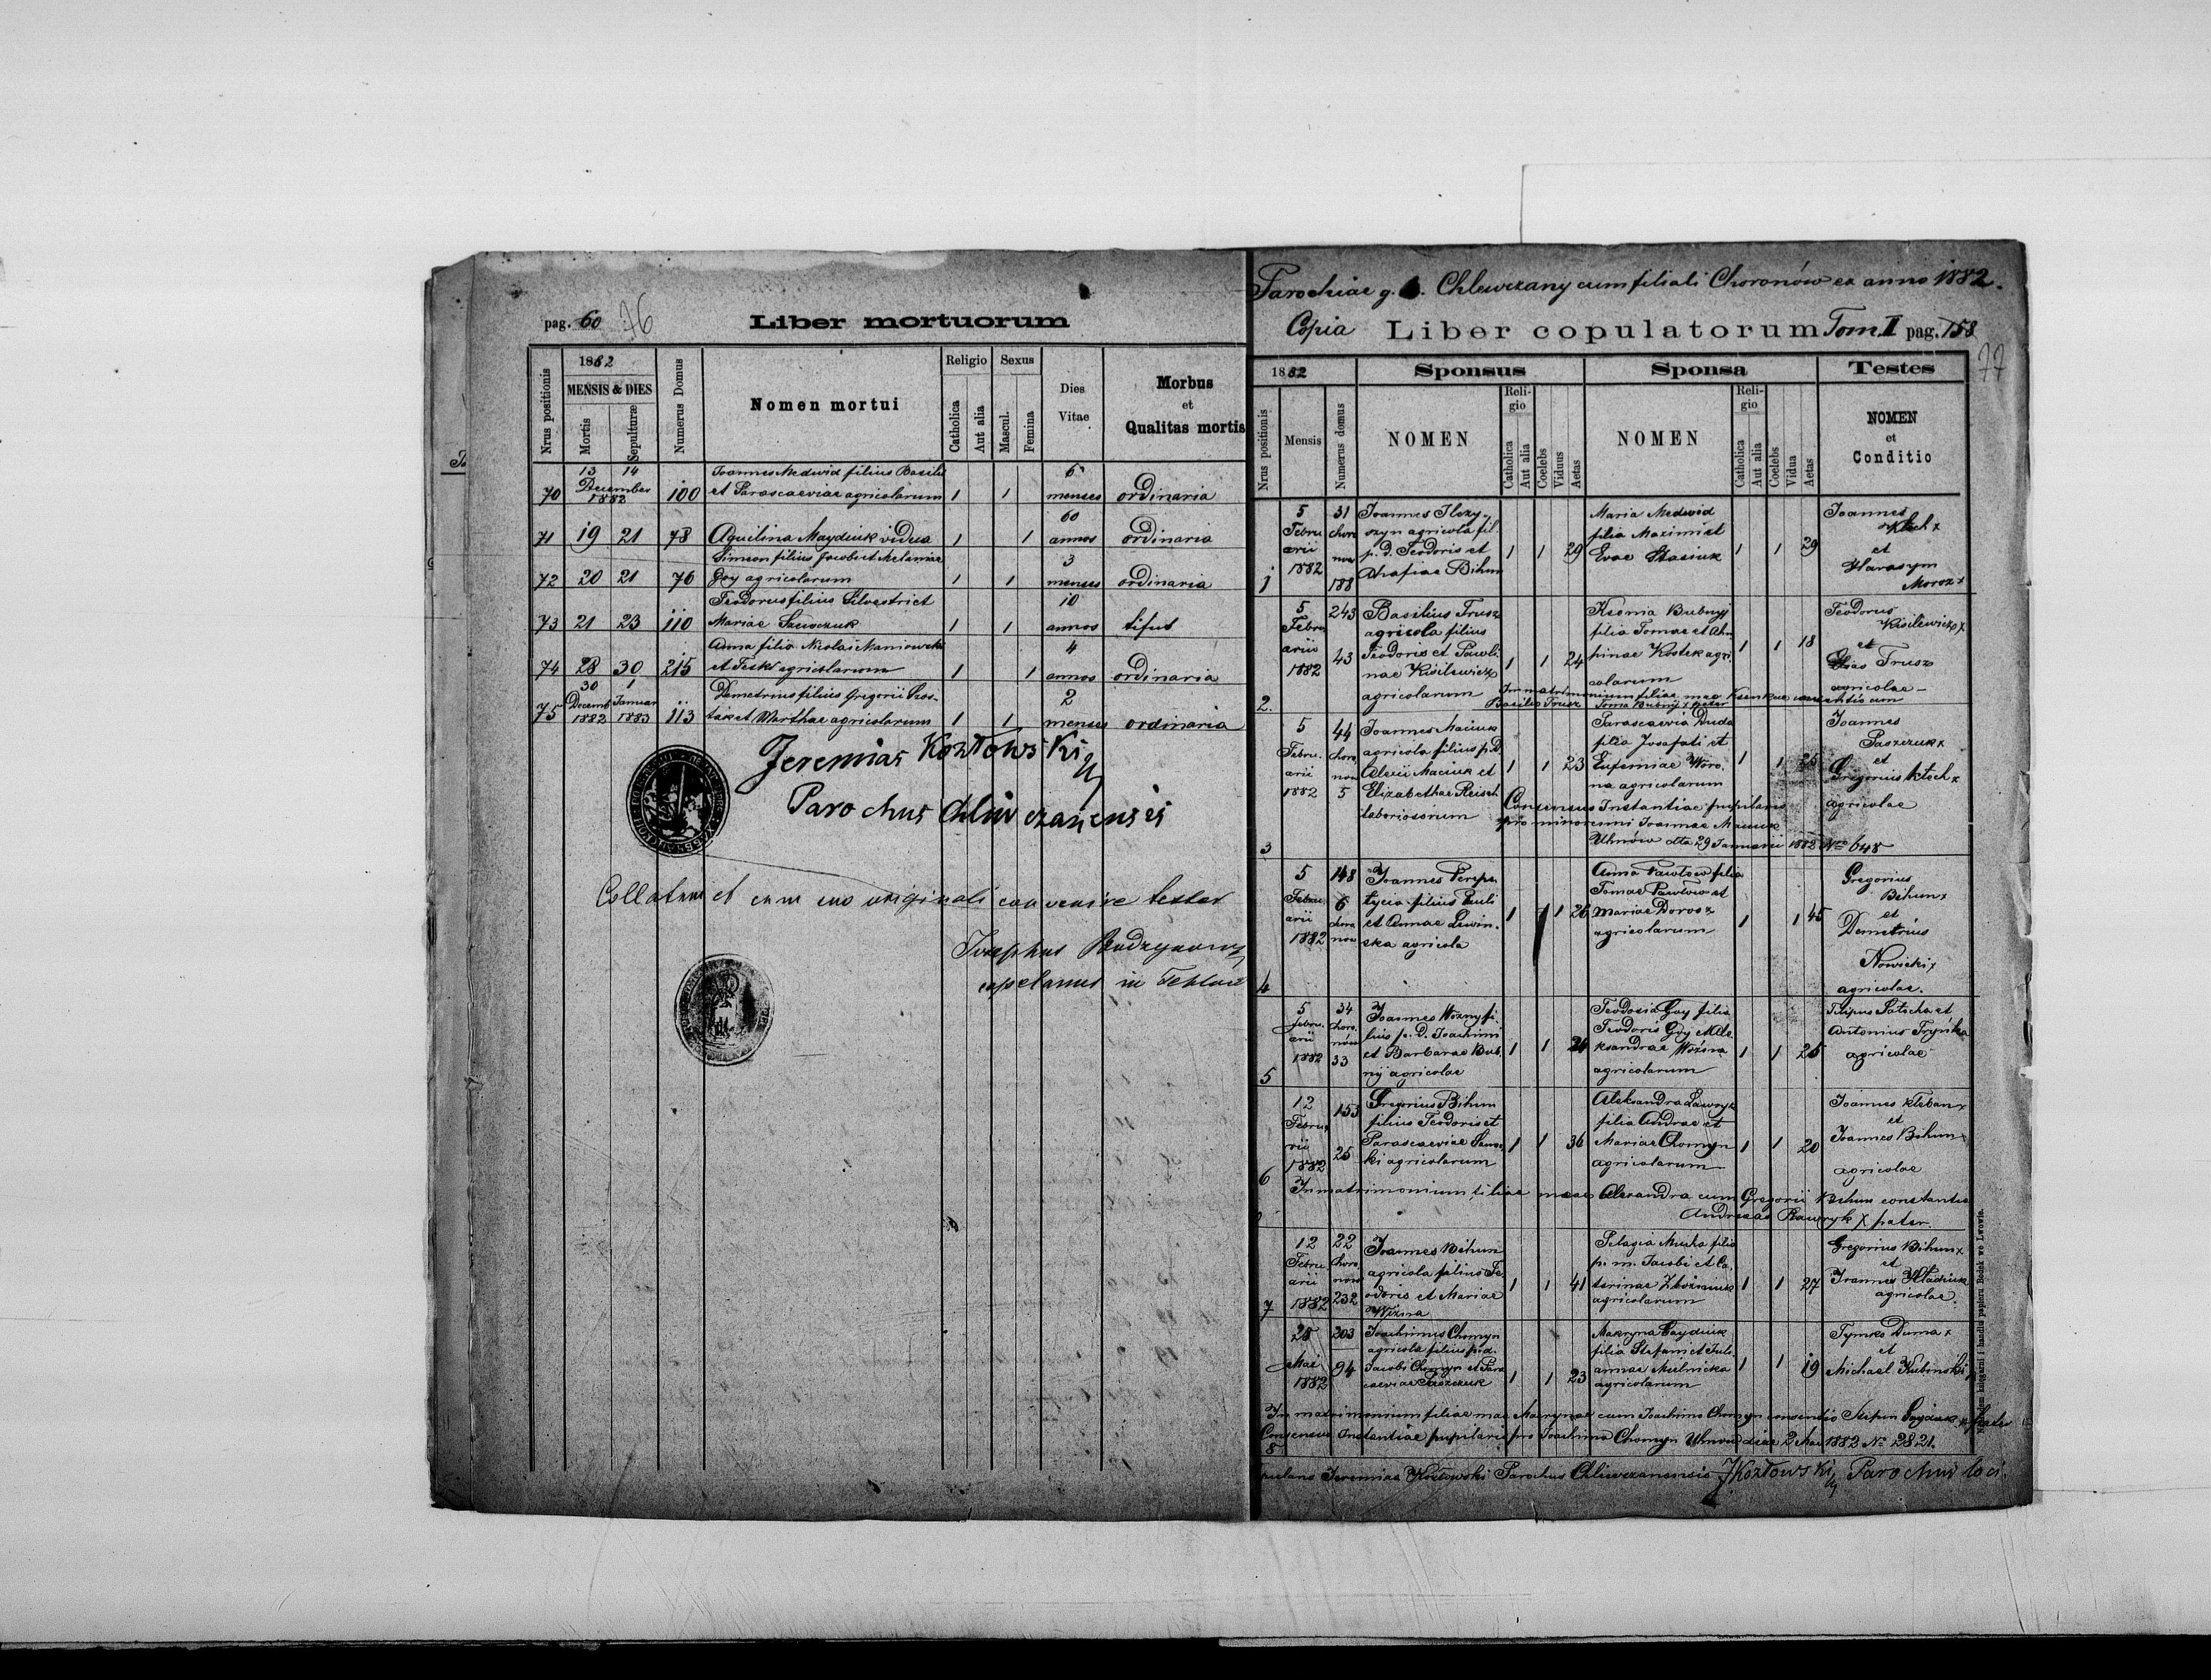 pag. 60 76
Liber mortuorum
Nrus positionis
1882
MENSIS & DIES
Mortis
Sepulturæ
Numerus Domus
Nomen mortui
Religio
Catholica
Aut alia
Sexus
Mascul.
Femina
Dies
Vitae
Morbus
et
Qualitas mortis
13 14 Joannes Medwid filius Basilii 6
70 December 1882 100 et Parascaeviae agricolarum 1 1 menses ordinaria
60
71 19 21 78 Aquilina Maydiuk vidua 1 1 annos ordinaria
Simeon filius Jacobi et Melaniae 3
72 20 21 76 Goy agricolarum 1 1 menses ordinaria
Teodorus filius Silvestri et 10
73 21 23 110 Mariae Szewczuk 1 1 annos tifus
Anna filia Nicolai Maniowski 4
74 28 30 215 et agricolarum 1 1 annos ordinaria
30 1 Demetrius filius Gregorii Pros- 2
75 Decemb 1882 Januar 1883 113 tak et Marthae agricolarum 1 1 menses ordinaria
Jeremias Kozłowski
Parochus Chliwczanensis
Collatum et cum suo originali convenire testor
Josephus
capelanus in
Parochiae g. Chlewczany cum filiali Choronów ex anno 1882.
Copia Liber copulatorum Tom. II pag. 158
77
1882
Sponsus
Sponsa
Testes
Nrus positionis
Mensis
Numerus domus
NOMEN
Religio
Catholica
Aut alia
Coelebs
Viduus
Aetas
NOMEN
Religio
Catholica
Aut alia
Coelebs
Vidua
Aetas
NOMEN
et
Conditio
5 31 Joannes Maria Medwid Joannes
Febru choro agricola fil. filia Maximi et Klech x
arii now p. D. Teodoris et 1 1 29 Evae Stasiuk 1 1 29 et
1882 Bihun Harasym
1 188 Moroz x
5 243 Basilius Trusz Ksenia Bubnyj Teodorus
Febru agricola filius filia Tomae et Kisilewicz x
arii 43 Teodoris et Pauli- Kostek agri- 1 1 18 et
1882 nae Kisilewicz 1 1 24 colarum Elias Trusz
agricolarum In matrimonium filiae mae Ksenkae consentio cum agricolae
2. Basilio Trusz Toma Bubnyj x pater
5 44 Joannes Maciuk Parascaevia Duda Joannes
Febru. choro agricola filius p. D. filia Josafati et Paszczuk x
arii now Alexii Maciuk et 1 1 23 Eufemiae Woro- 1 1 25 et
1882 5 Elizabethae Reisch na agricolarum Gregorius Klech x
laboriosorum Consensus Instantiae pupilaris agricolae
pro minorenni Joannae Maciuk
3 Uhnów dtto 29 Januarii 1882 Nro 648
5 148 Joannes Anna Pawłow filia Gregorius
Febru. 6 filius Pauli Tomae Pawłow et Bihun x
arii choro et Annae Lewin- 1 1 26 Mariae Dorosz 1 1 45 et
1882 now ska agricola agricolarum Demetrius
Nowicki x
4 agricolae.
5 34 Joannes Woźny fi- Teodosia Goy filia Filipus et
Febru. choro lius p. D. Joachimi Teodoris Goy et Ale- Antonius
arii nów et Barbarae Bub- 1 1 24 ksandrae Woźna 1 1 25 agricolae
1882 33 nij agricolae agricolarum
5
12 153 Gregorius Bihun Aleksandra Ławryk Joannes Kleban x
Febru filius Teodoris et filia Andrae et et
rii Parascaeviae 1 1 36 Mariae Chomyn 1 1 20 Joannes Bihun x
1882 25 agricolarum agricolarum agricolae
6 In matrimonium filiae meae Alexandra cum Gregorii Bihun
Andreas Ławryk x pater.
12 22 Joannes Bihun Pelagia Mucha filia Gregorius Bihun x
Febru. choro agricola filius Te- p. m. Jacobi et Ca- et
arii now odoris et Mariae 1 1 41 tarinae 1 1 27 Joannes
7 1882 232 Woźna agricolarum agricolae.
28 203 Joachimus Chomyn Makryna Gayduk Tymko Duma x
Mai agricola filius p. d. filia Stefani et Juli- et
94 Jacobi Chomyn et Para- annae Mielnicka 1 1 19 Michael
1882 scaeviae Paszczuk 1 1 23 agricolarum
In matrimonium filiae mae cum Joachimo Chomyn consentio Gayduk x pater
Consensus Instantiae pupilaris pro Joachimo Chomyn Uhnow 2 Mai 1882 No 2821.
8
Jeremias Kozłowski Parochus Chliwczanensis JKozłowski Parochus loci.
Nakładem księgarni i handlu papieru Bodek we Lwowie.